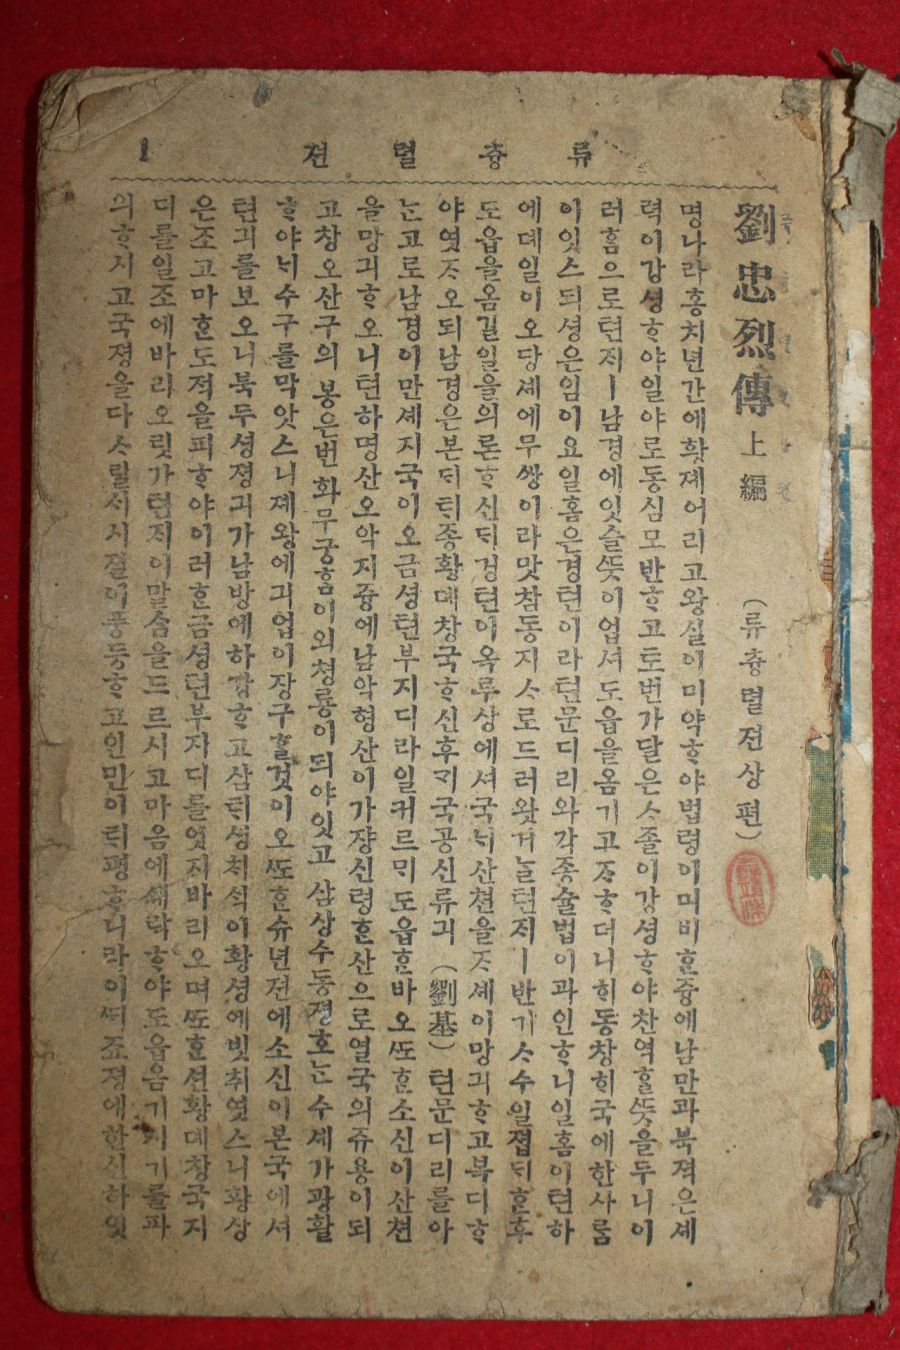 류츙렬젼 1
劉忠烈傳 上編 (류츙렬젼상편)
명나라홍치년간에황뎨어리고왕실이미약ᄒᆞ야법령이미비ᄒᆞᆫ즁에남만과북젹은셰
력이강셩ᄒᆞ야일야로동심모반ᄒᆞ고토번가달은ᄉᆞ졸이강셩ᄒᆞ야찬역ᄒᆞᆯᄯᅳᆺ을두니이
러홈으로텬ᄌᆡㅣ남경에잇슬ᄯᅳᆺ이업셔도읍을옴기고ᄌᆞᄒᆞ더니ᄒᆡ동창ᄒᆡ국에한사ᄅᆞᆷ
이잇스되셩은임이요일홈은경텬이라텬문디리와각죵슐법이과인ᄒᆞ니일홈이텬하
에뎨일이오당셰에무쌍이라맛참동지ᄉᆞ로드러왓거ᄂᆞᆯ텬ᄌᆡㅣ반기ᄉᆞ수일졉ᄃᆡᄒᆞᆫ후
도읍을옴길일을의론ᄒᆞ신ᄃᆡ경텬이옥루상에셔국ᄂᆡ산쳔을ᄌᆞ셰이망긔ᄒᆞ고복디ᄒᆞ
야엿ᄌᆞ오되남경은본ᄃᆡᄐᆡ종황뎨창국ᄒᆞ신후ᄀᆡ국공신류긔(劉基)텬문디리를아
ᄂᆞᆫ고로남경이만셰지국이오금셩텬부지디라일커르ᄆᆡ도읍ᄒᆞᆫ바오ᄯᅩᄒᆞᆫ소신이산쳔
을망긔ᄒᆞ오니텬하명산오악지즁에남악형산이가쟝신령ᄒᆞᆫ산으로열국의쥬룡이되
고창오산구의봉은번화무궁홈이외쳥룡이되야잇고삼상수동졍호ᄂᆞᆫ수셰가광활
ᄒᆞ야ᄂᆡ수구를막앗스니뎨왕에긔업이장구ᄒᆞᆯ것이오ᄯᅩᄒᆞᆫ슈년젼에소신이본국에셔
텬긔를보오니북두셩졍긔가남방에하강ᄒᆞ고삼ᄐᆡ셩ᄎᆡ석이황셩에빗취엿스니황상
은조고마ᄒᆞᆫ도적을피ᄒᆞ야이러ᄒᆞᆫ금셩텬부지디를엇지바리오며ᄯᅩᄒᆞᆫ션황뎨창국지
디를일조에바리오릿가텬ᄌᆡ이말ᄉᆞᆷ을드르시고마음에쇄락ᄒᆞ야도읍옴기기를파
의ᄒᆞ시고국졍을다ᄉᆞ릴ᄉᆡ시졀이풍등ᄒᆞ고인민이ᄐᆡ평ᄒᆞ니라이ᄯᆡ죠졍에한신하잇